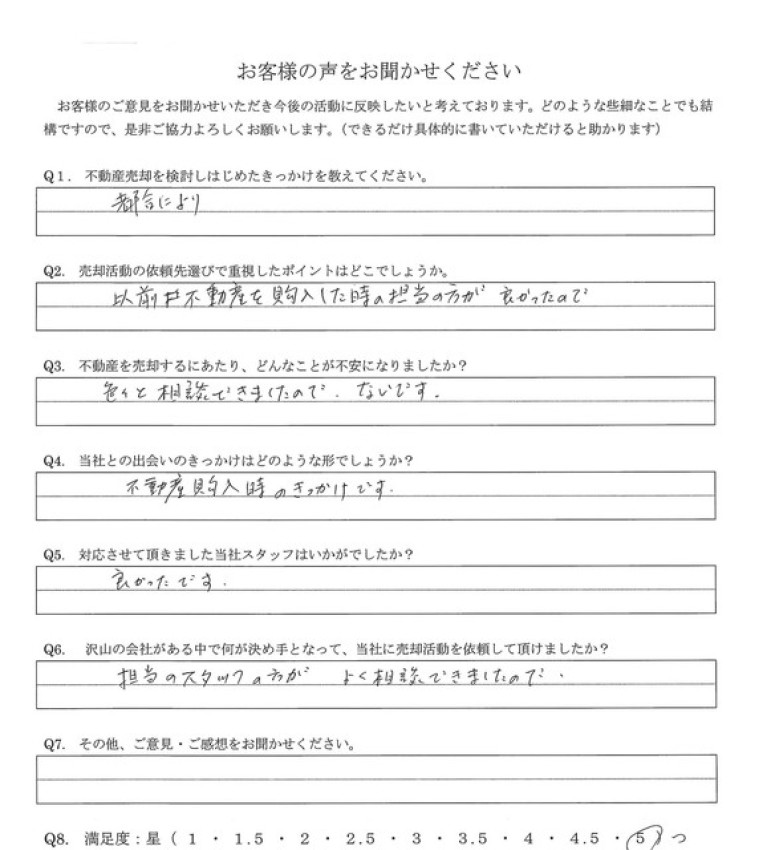 お客様の声をお聞かせください
お客様のご意見をお聞かせいただき今後の活動に反映したいと考えております。どのような些細なことでも結
構ですので、是非ご協力よろしくお願いします。（できるだけ具体的に書いていただけると助かります）
Q1. 不動産売却を検討しはじめたきっかけを教えてください。
都合により
Q2. 売却活動の依頼先選びで重視したポイントはどこでしょうか。
以前 不動産を購入した時の担当の方が 良かったので
Q3. 不動産を売却するにあたり、どんなことが不安になりましたか？
色々と相談できましたので、ないです。
Q4. 当社との出会いのきっかけはどのような形でしょうか？
不動産購入時のきっかけです。
Q5. 対応させて頂きました当社スタッフはいかがでしたか？
良かったです。
Q6. 沢山の会社がある中で何が決め手となって、当社に売却活動を依頼して頂けましたか？
担当のスタッフの方が よく相談できましたので。
Q7. その他、ご意見・ご感想をお聞かせください。
Q8. 満足度：星（ 1 ・ 1.5 ・ 2 ・ 2.5 ・ 3 ・ 3.5 ・ 4 ・ 4.5 ・ 5 ）つ